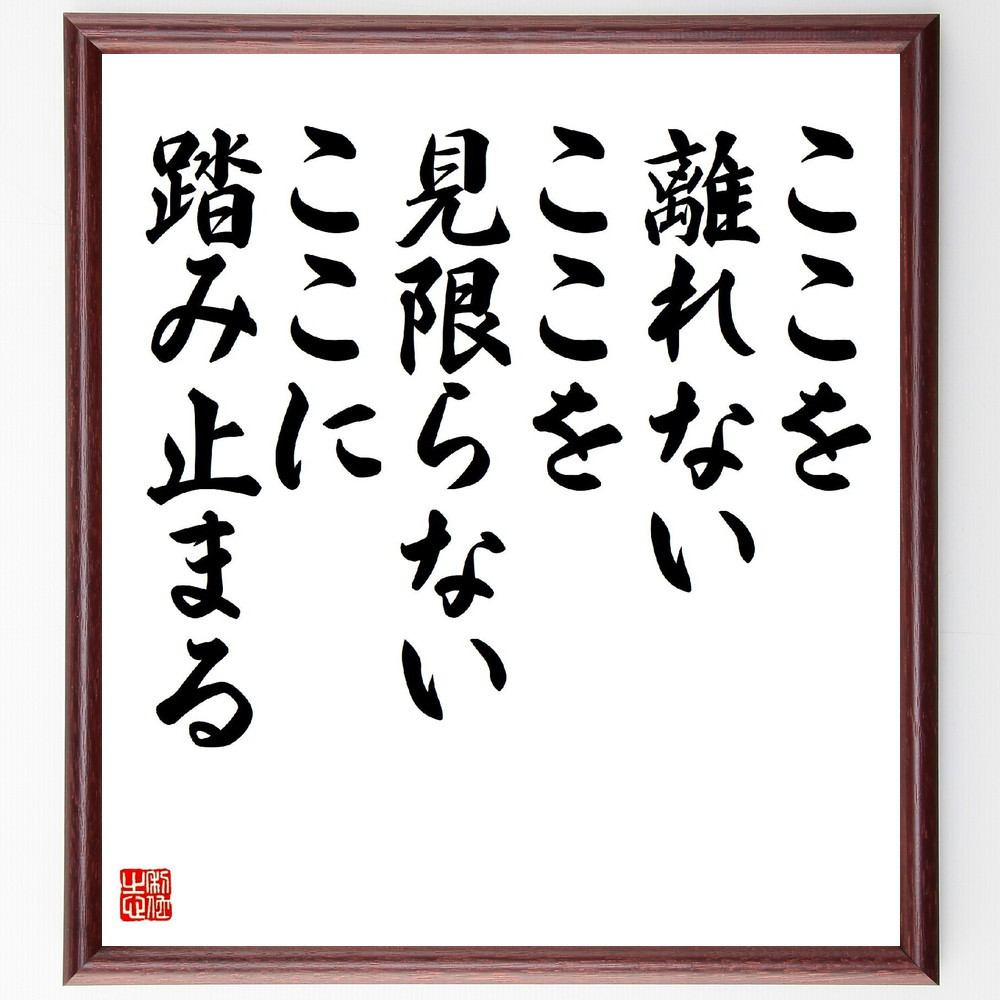 ここを
離れない
ここを
見限らない
ここに
踏み止まる